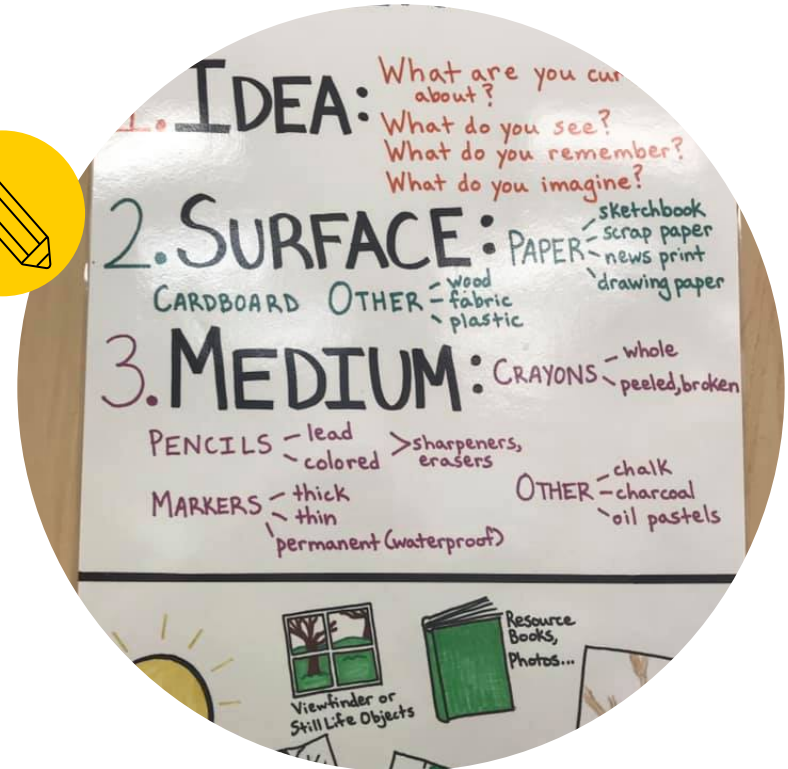 1. IDEA: What are you
about?
What do you see?
What do you remember?
What do you imagine?
2. SURFACE: PAPER - sketchbook
- scrap paper
- news print
- drawing paper
CARDBOARD OTHER - wood
- fabric
- plastic
3. MEDIUM: CRAYONS - whole
- peeled, broken
PENCILS - lead
- colored > sharpeners,
erasers
MARKERS - thick
- thin
- permanent (waterproof)
OTHER - chalk
- charcoal
- oil pastels
Viewfinder or
Still Life Objects
Resource
Books,
Photos...